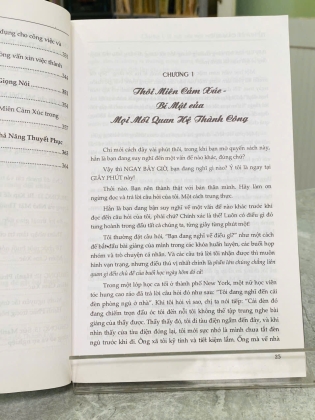 dụng cho công việc và
ông vấn xin việc thành
Giọng Nói
Miên Cảm Xúc trong
hả Năng Thuyết Phục
CHƯƠNG 1
Thôi Miên Cảm Xúc -
Bí Mật của
Mọi Mối Quan Hệ Thành Công
Chỉ mới cách đây vài phút thôi, trong khi bạn mở quyển sách này,
hẳn là bạn đang suy nghĩ đến một vấn đề nào khác, đúng chứ?
Vậy thì NGAY BÂY GIỜ, bạn đang nghĩ gì nào? Ý tôi là ngay tại
GIÂY PHÚT này!
Thôi nào. Bạn nên thành thật với bản thân mình. Hãy làm ơn
ngừng đọc và suy nghĩ về điều đó trong một giây.
Hẳn là bạn đang bận suy nghĩ về một vấn đề nào khác trước khi
đọc đến câu hỏi của tôi, phải chứ? Chính xác là thế! Luôn có điều gì đó
tung hoành trong đầu tất cả chúng ta, từng giây từng phút một!
Tôi thường đặt câu hỏi, "Bạn đang nghĩ về điều gì?" như một cách
để bắt đầu bài giảng của mình trong các khóa huấn luyện, các buổi họp
nhóm và trò chuyện cá nhân. Và các câu trả lời tôi nhận được thì muôn
hình vạn trạng, nhưng điều thú vị nhất chính là phần lớn chúng chẳng liên
quan gì đến chủ đề của buổi học ngày hôm đó cả!
Trong một lớp học của tôi ở thành phố New York, một nữ học viên
tóc hung cao ráo đã trả lời câu hỏi đó như sau: "Tôi đang nghĩ đến cái
đèn phòng ngủ ở nhà". Khi tôi hỏi vì sao, chị ta nói tiếp: "Cái đèn đó
đang chiếm trọn đầu óc tôi đến nỗi tôi không thể tập trung nghe bài
giảng của thầy được. Thầy thấy đó, tôi đi tàu điện ngầm đến đây, và
khi cánh cửa tàu điện đóng lại, tôi mới sực nhớ là mình chưa tắt đèn
ngủ trước khi đi. Ông xã tôi kỹ tính và tiết kiệm lắm. Ông mà về nhà
23